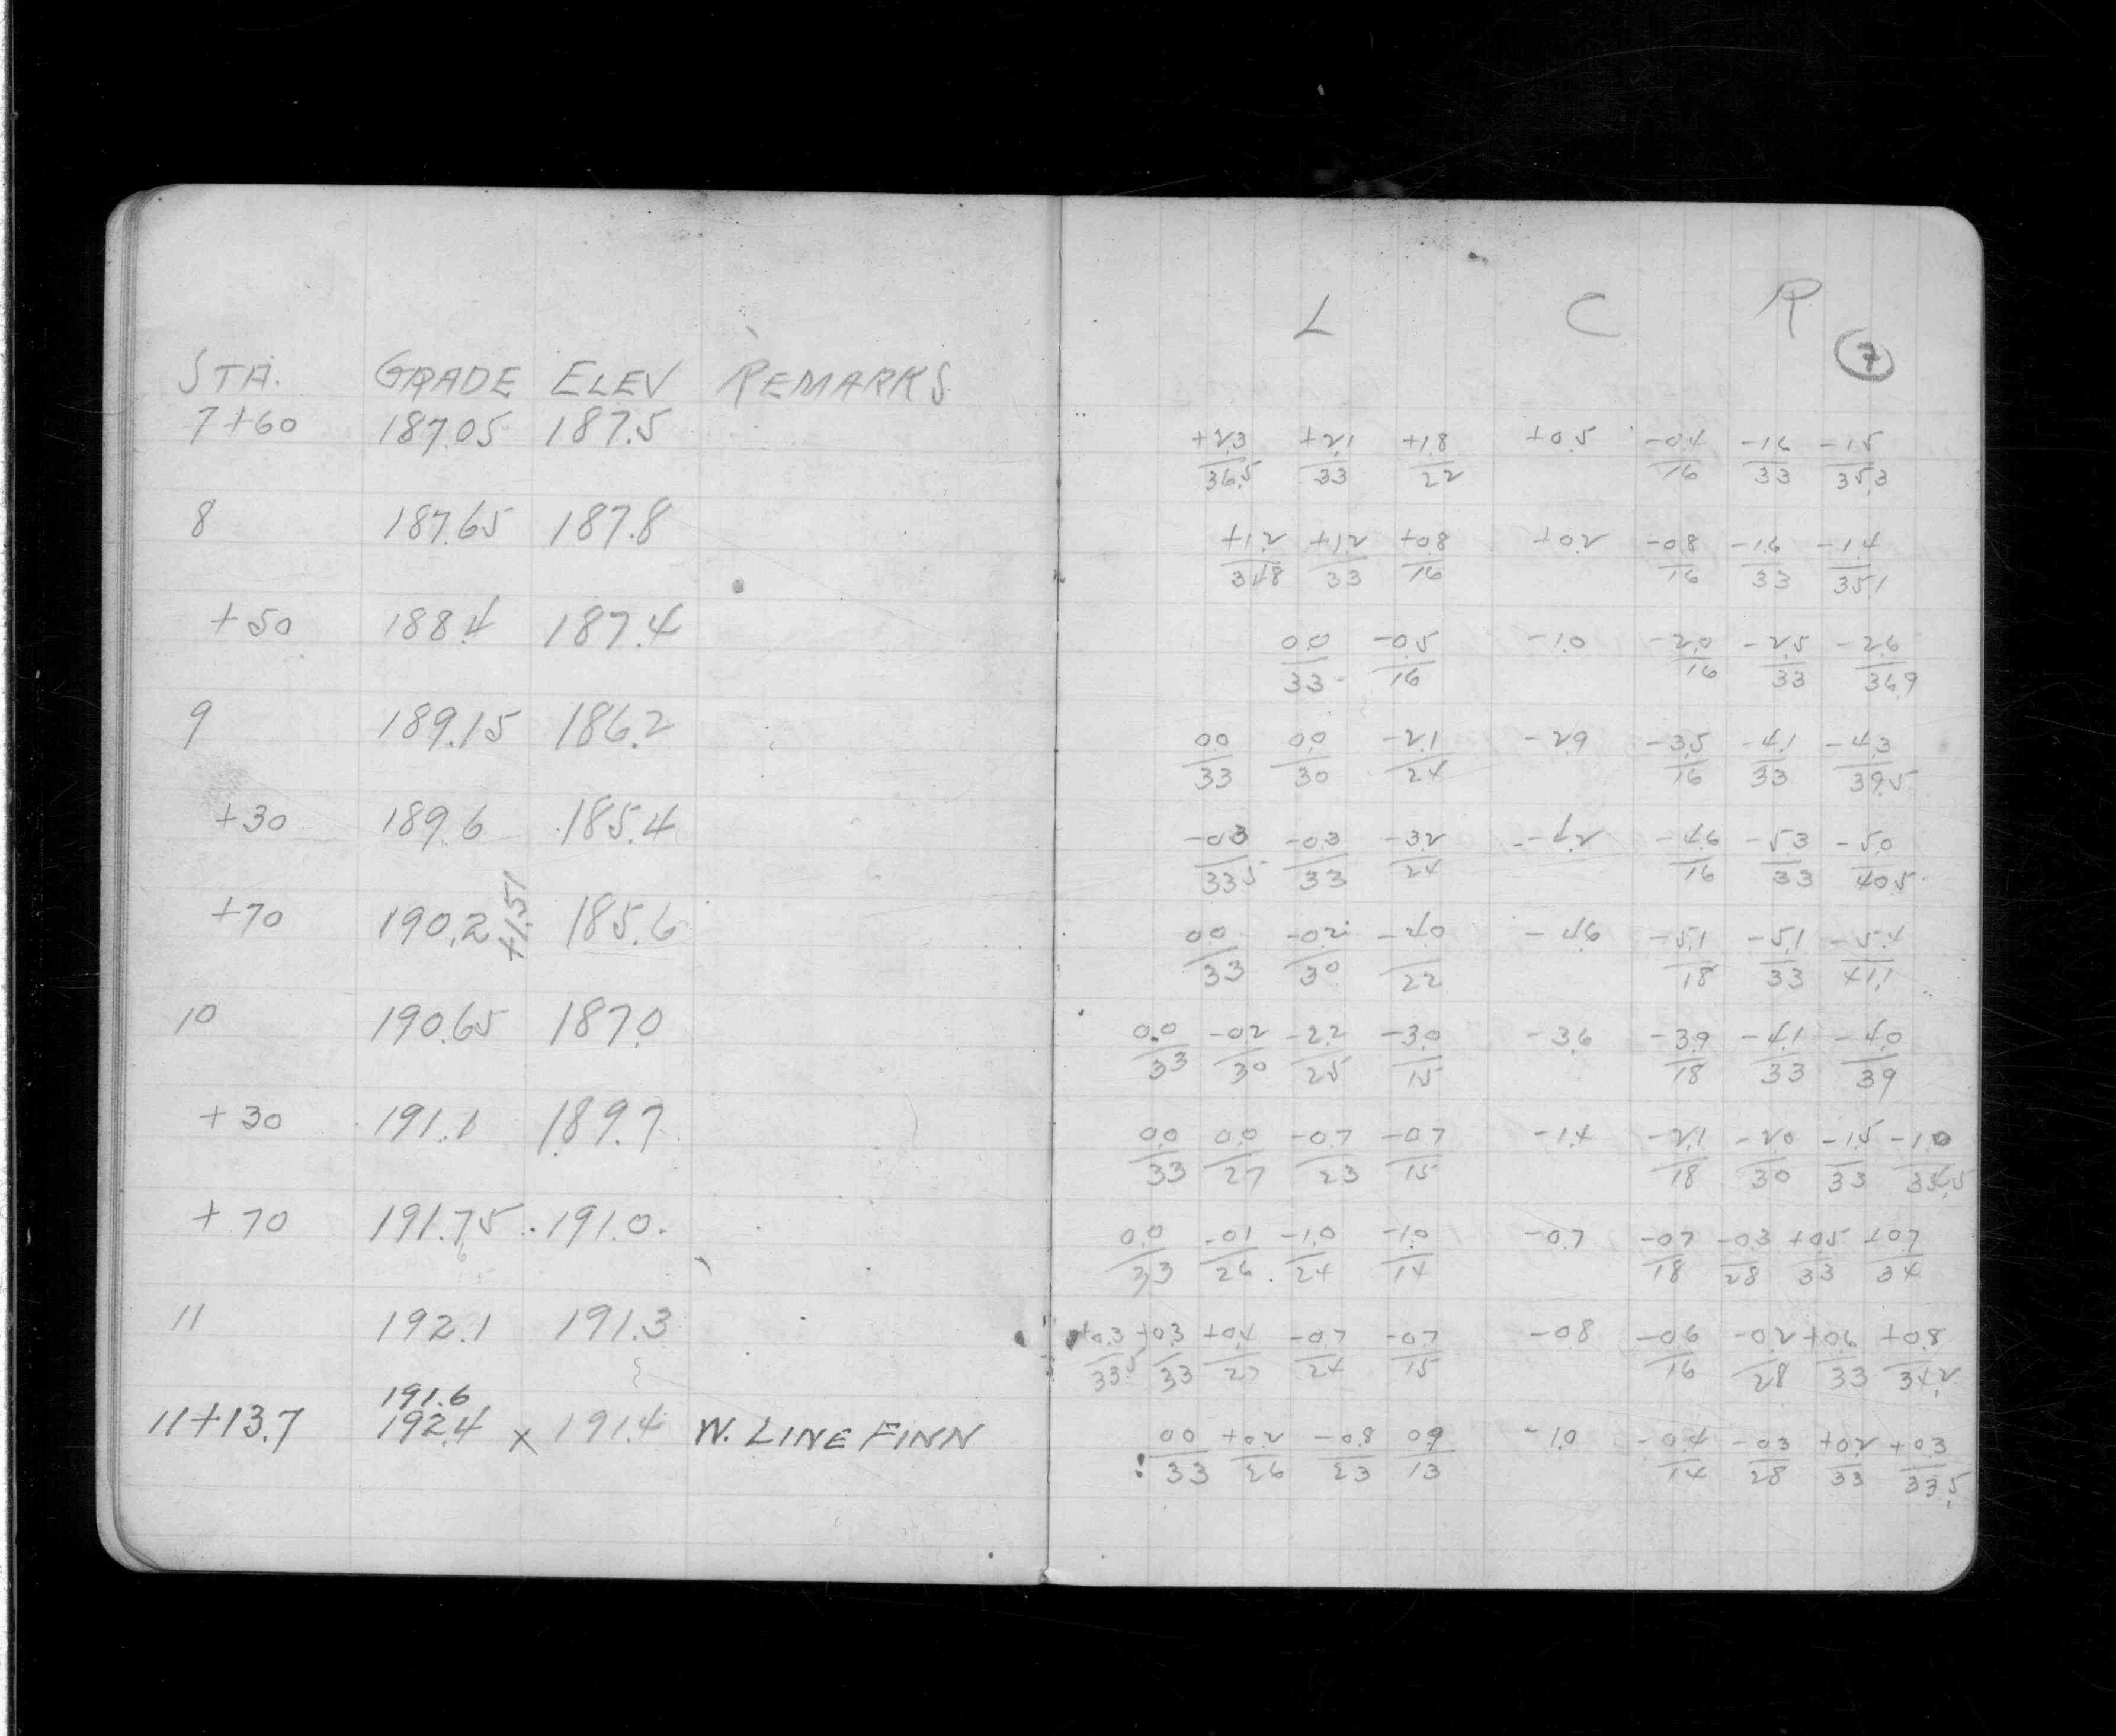 L C R
7
STA. GRADE ELEV REMARKS.
7+60 187.05 187.5
+2.3 +2.1 +1.8 +0.5 -0.4 -1.6 -1.5
36.5 33 22 16 33 35.3
8 187.65 187.8
+1.2 +1.2 +0.8 +0.2 -0.8 -1.6 -1.4
34.8 33 16 16 33 35.1
+50 188.4 187.4
0.0 -0.5 -1.0 -2.0 -2.5 -2.6
33 16 16 33 36.9
9 189.15 186.2
0.0 0.0 -2.1 -2.9 -3.5 -4.1 -4.3
33 30 24 16 33 39.5
+30 189.6 185.4
-0.3 -0.3 -3.2 -4.2 -4.6 -5.3 -5.0
33.5 33 24 16 33 40.5
+1.51
+70 190.2 185.6
0.0 -0.2 -4.0 -4.6 -5.1 -5.1 -5.4
33 30 22 18 33 41.1
10 190.65 187.0
0.0 -0.2 -2.2 -3.0 -3.6 -3.9 -4.1 -4.0
33 30 25 15 18 33 39
+30 191.1 189.7
0.0 0.0 -0.7 -0.7 -1.4 -2.1 -2.0 -1.5 -1.0
33 27 23 15 18 30 33 34.5
+70 191.75 191.0
0.0 -0.1 -1.0 -1.0 -0.7 -0.7 -0.3 +0.5 +0.7
33 26 24 14 18 28 33 34
11 192.1 191.3
+0.3 +0.3 +0.4 -0.7 -0.7 -0.8 -0.6 -0.2 +0.6 +0.8
33.5 33 27 24 15 16 28 33 34.2
191.6
11+13.7 192.4 x 191.4 W. LINE FINN
0.0 +0.2 -0.8 0.9 -1.0 -0.4 -0.3 +0.2 +0.3
33 26 23 13 14 28 33 33.5